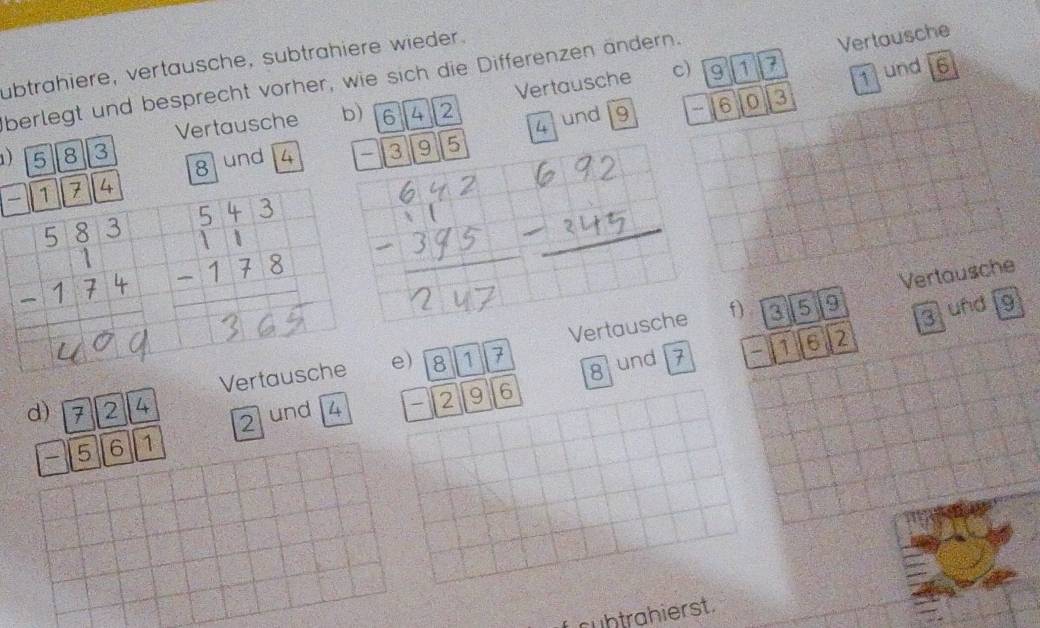 ubtrahiere, vertausche, subtrahiere wieder.
berlegt und besprecht vorher, wie sich die Differenzen ändern.
) 5 8 3 Vertausche
- 1 7 4 8 und 4
b) 6 4 2 Vertausche
- 3 9 5 4 und 9
c) 9 1 7 Vertausche
- 6 0 3 1 und 6
5 8 3
1
- 1 7 4
4 0 9
5 4 3
1 1
- 1 7 8
3 6 5
6 4 2
1 1
- 3 9 5
2 4 7
6 9 2
- 3 4 5
d) 7 2 4 Vertausche
- 5 6 1 2 und 4
e) 8 1 7 Vertausche
- 2 9 6 8 und 7
f) 3 5 9 Vertausche
- 1 6 2 3 und 9
subtrahierst.